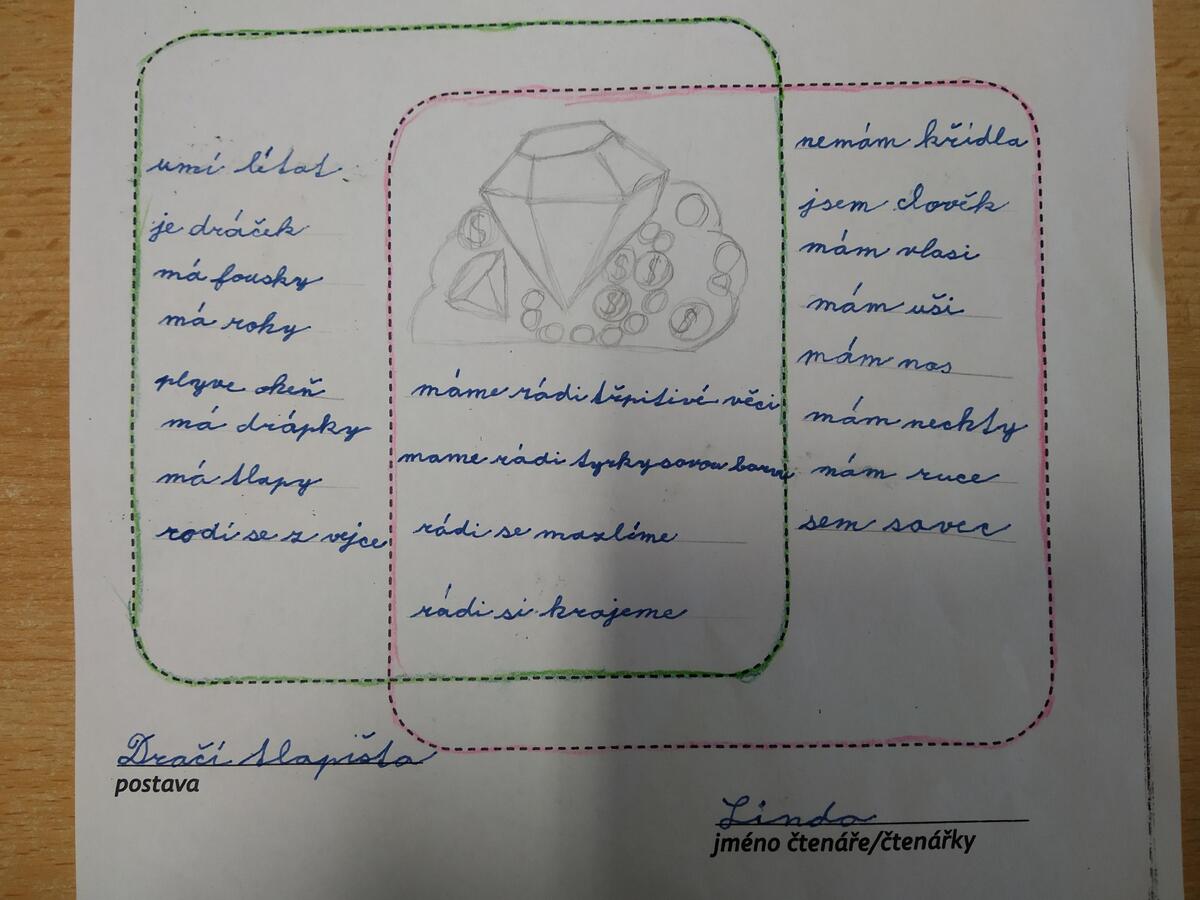 umí létat
je dráček
má fousky
má rohy
plyve oheň
má drápky
má tlapy
rodi se z vejce
máme rádi třpitivé věci
mame rádi tyrkysovou barvu
rádi se mazlíme
rádi si hrajeme
nemám křídla
jsem človék
mám vlasi
mám uši
mám nos
mám nechty
mám ruce
sem savec
Dračí tlapišta
postava
Linda
jméno čtenáře/čtenářky